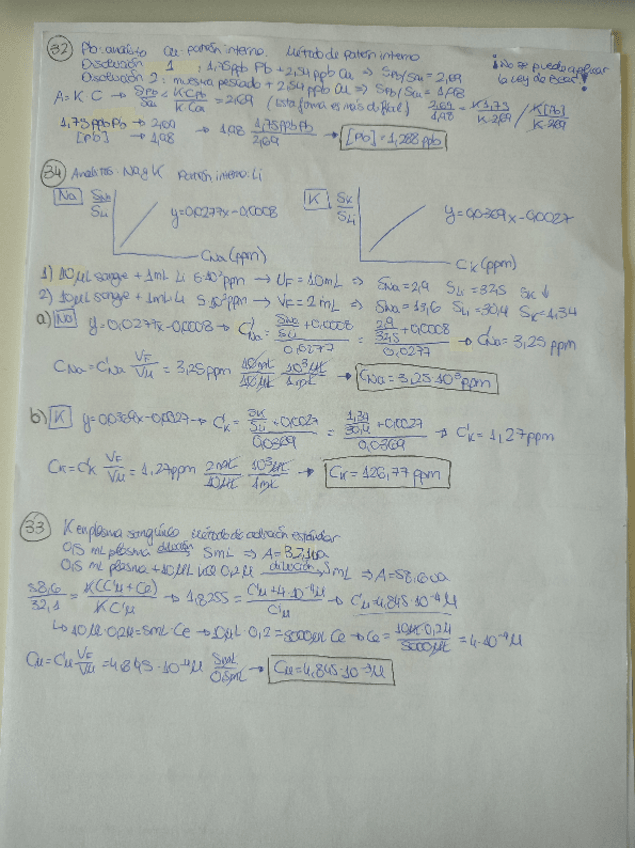 32 Pb: analito Cu: patrón interno. Método de patrón interno
Disolución 1: 1,75ppb Pb + 2,54ppb Cu ⇒ SPb/SCu = 2,69
¡No se puede aplicar la Ley de Beer!
Disolución 2: muestra + 2,54 ppb Cu ⇒ SPb/SCu = 1,98
A = K·C → SPb/SCu = K·CPb/K·CCu = 2,69 (esta forma es más difícil) 2,69/1,98 = K·1,75/K·2,69 / K[Pb]/K·2,69
1,75ppb Pb → 2,69
[Pb] → 1,98 → 1,98 · 1,75ppb Pb/2,69 → [Pb] = 1,288 ppb
34 Analitos: Na y K Patrón interno: Li
Na SNa/SLi y=0,0277x-0,0008 CNa (ppm)
K SK/SLi y=0,0369x-0,0027 CK (ppm)
1) 10μL sangre + 1mL Li 5·10³ppm → VF = 10mL ⇒ SNa=2,9 SLi=32,5 SK ↓
2) 10μL sangre + 1mL Li 5·10³ppm → VF = 2mL ⇒ SNa=13,6 SLi=30,4 SK=1,34
a) Na y=0,0277x-0,0008 → C'Na = (SNa/SLi + 0,0008)/0,0277 = (2,9/32,5 + 0,0008)/0,0277 → C'Na = 3,25 ppm
CNa = C'Na VF/VM = 3,25ppm 10mL/10μL 10³μL/1mL → CNa = 3,25·10³ppm
b) K y=0,0369x-0,0027 → C'K = (SK/SLi + 0,0027)/0,0369 = (1,34/30,4 + 0,0027)/0,0369 → C'K = 1,27ppm
CK = C'K VF/VM = 1,27ppm 2mL/10μL 10³μL/1mL → CK = 126,77 ppm
33 K en plasma sanguíneo Método de adición estándar
0,5 mL plasma dilución 5mL ⇒ A=32,1ua
0,5 mL plasma + 10μL KCl 0,2M dilución 5mL ⇒ A=58,6ua
58,6/32,1 = K(C'M + Ce)/K C'M → 1,8255 = (C'M + 4·10⁻⁴M)/C'M → C'M = 4,845·10⁻⁴M
↳ 10μL·0,2M = 5mL·Ce → 10μL·0,2 = 5000μL Ce → Ce = 10μL·0,2M/5000μL = 4·10⁻⁴M
CM = C'M VF/VM = 4,845·10⁻⁴M 5mL/0,5mL → CM = 4,845·10⁻³M